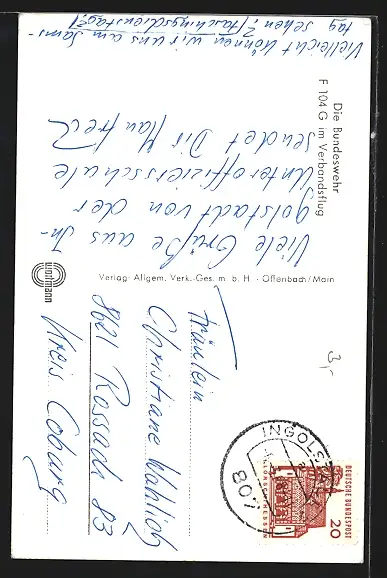 Die Bundeswehr
F 104 G im Verbandsflug
Viele Grüße aus In-
golstadt von der
Unteroffiziersschule
sendet Dir Manfred
Vielleicht können wir uns am Sams-
tag sehen? (Faschingsdienstag!)
Verlag: Allgem. Verk.-Ges. m. b. H. - Offenbach/Main
Fräulein
Christiane Wahlig
8621 Rossach 83
Kreis Coburg
3,-
INGOLSTADT
807
DEUTSCHE BUNDESPOST
20